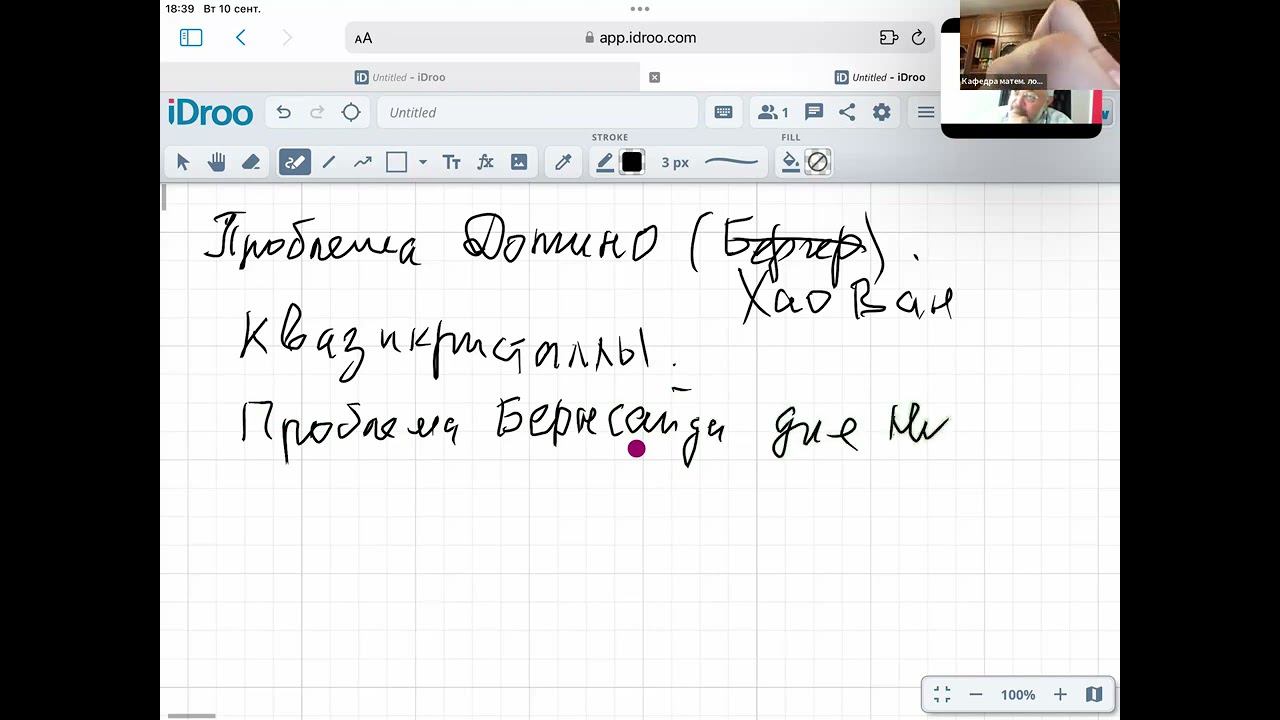 18:39 Вт 10 сент.
AA app.idroo.com
Untitled - iDroo Untitled - iDroo
Кафедра матем. ло...
iDroo Untitled 1
STROKE FILL
Tт fx 3 px
Проблема Домино (Бергер).
Хао Ван
Квазикристаллы.
Проблема Бернсайда для
100%